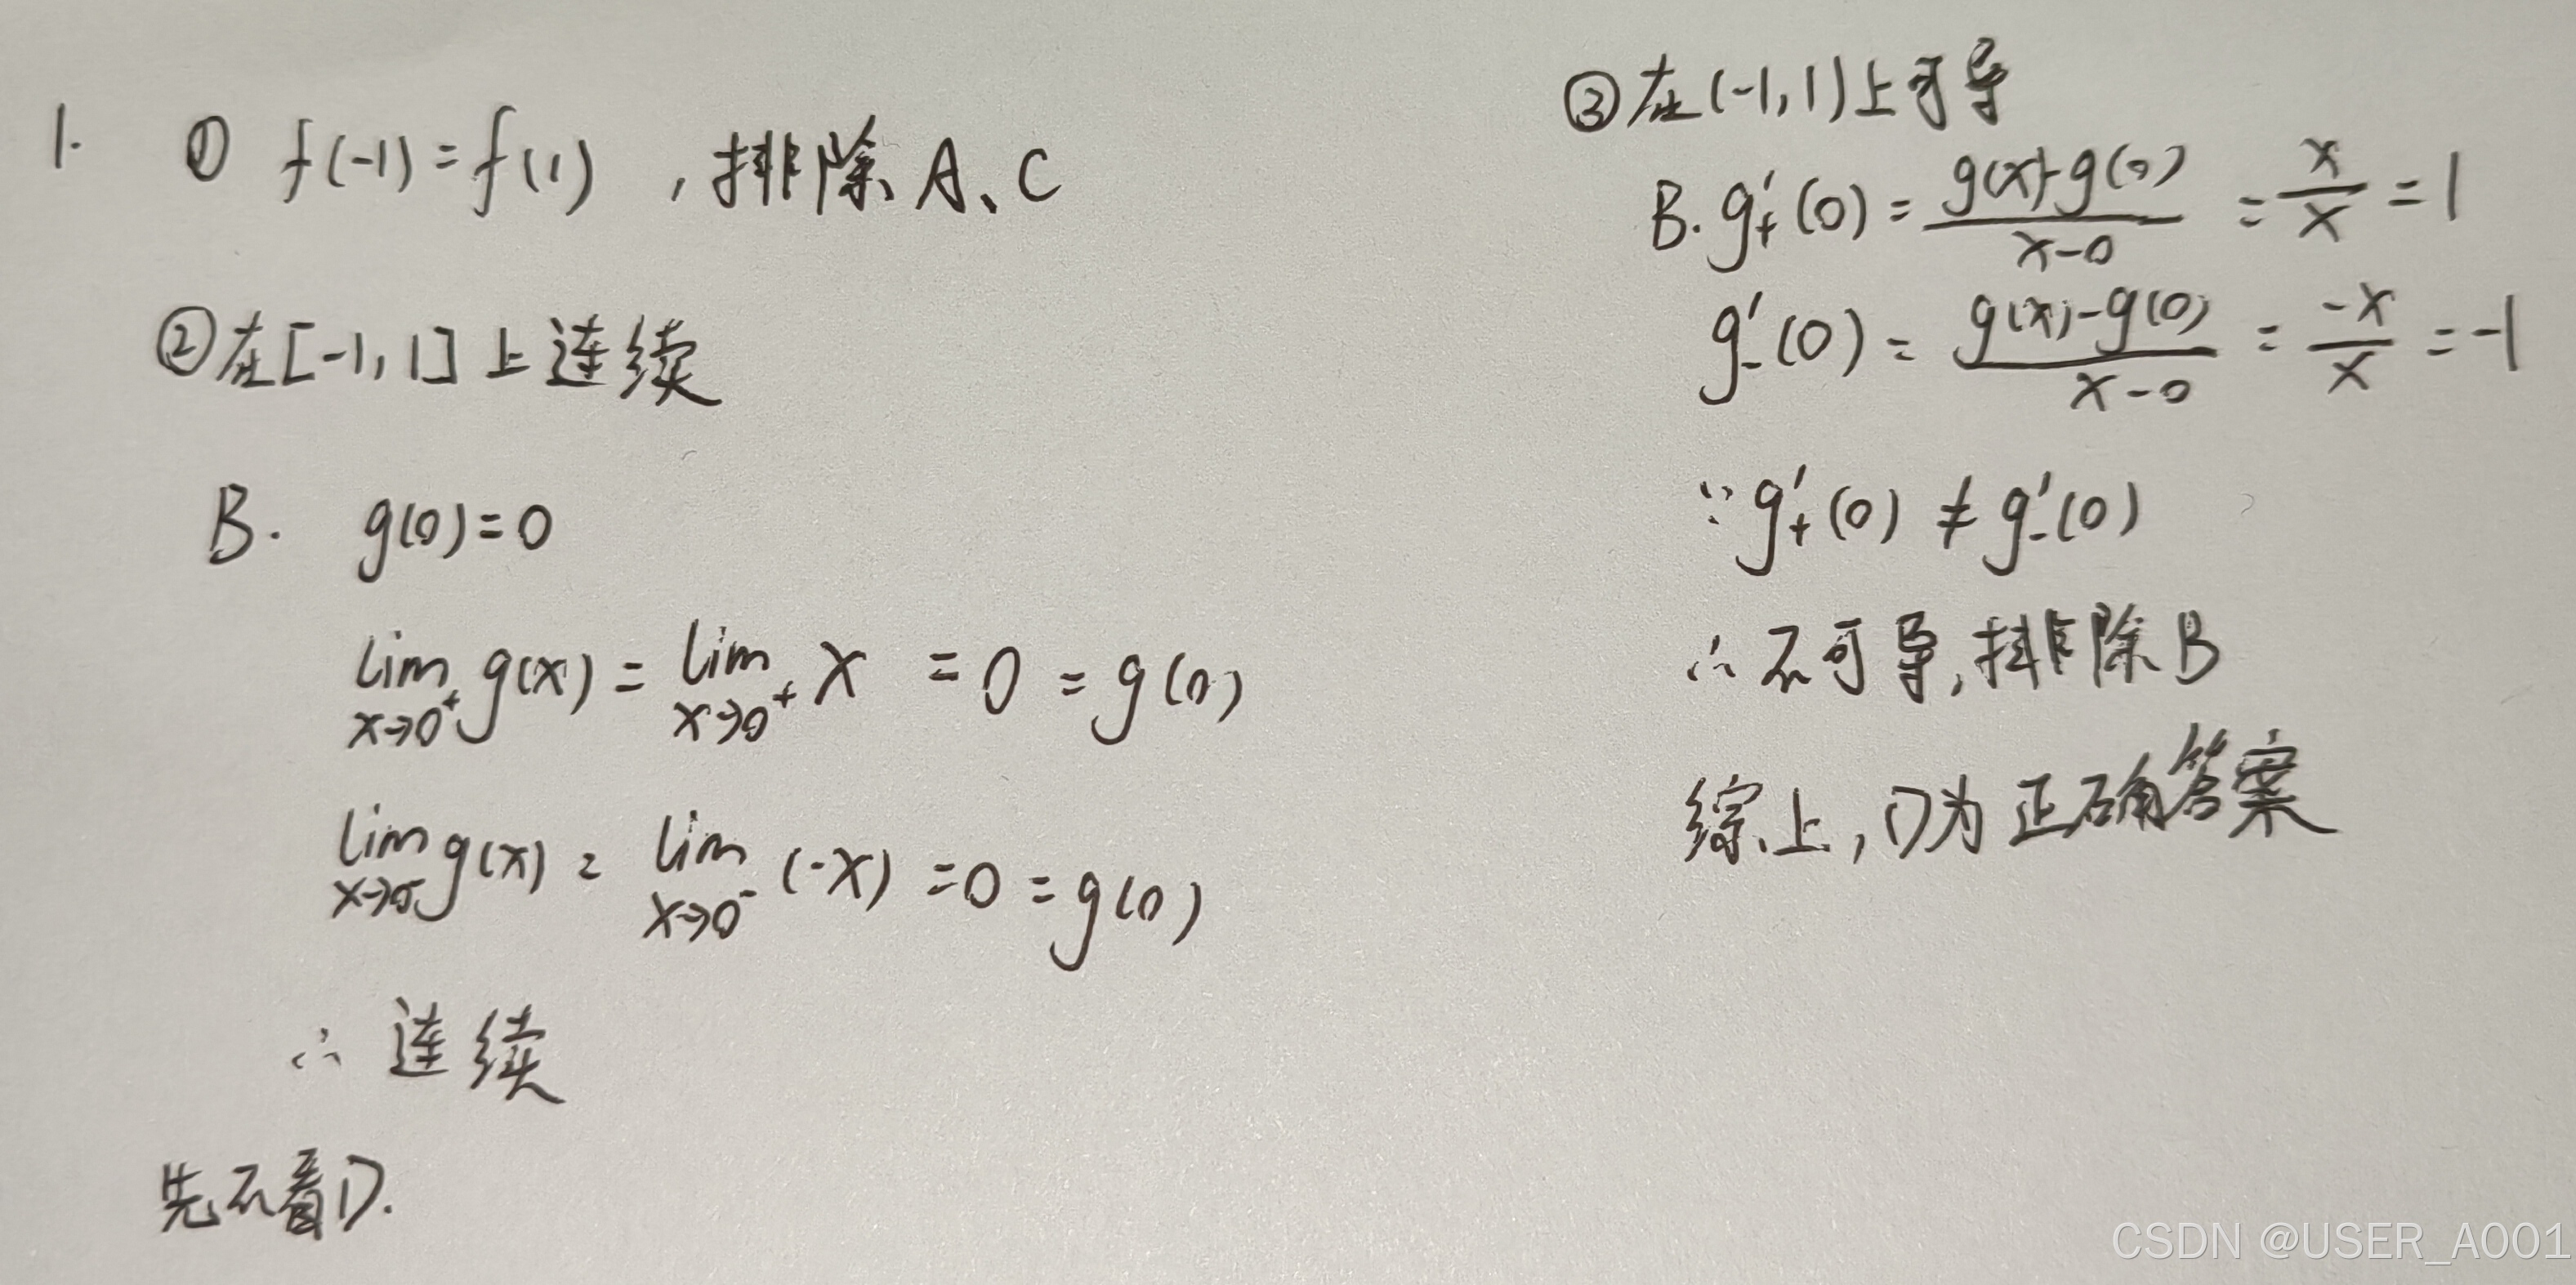 1. ① f(-1)=f(1)，排除A、C
②在[-1,1]上连续
B. g(0)=0
lim x→0⁺ g(x) = lim x→0⁺ x = 0 = g(0)
lim x→0⁻ g(x) = lim x→0⁻ (-x) = 0 = g(0)
∴ 连续
先不看D.
③在(-1,1)上可导
B. g'₊(0) = g(x)-g(0) / x-0 = x/x = 1
g'₋(0) = g(x)-g(0) / x-0 = -x/x = -1
∵ g'₊(0) ≠ g'₋(0)
∴ 不可导,排除B
综上,D为正确答案
CSDN @USER_A001